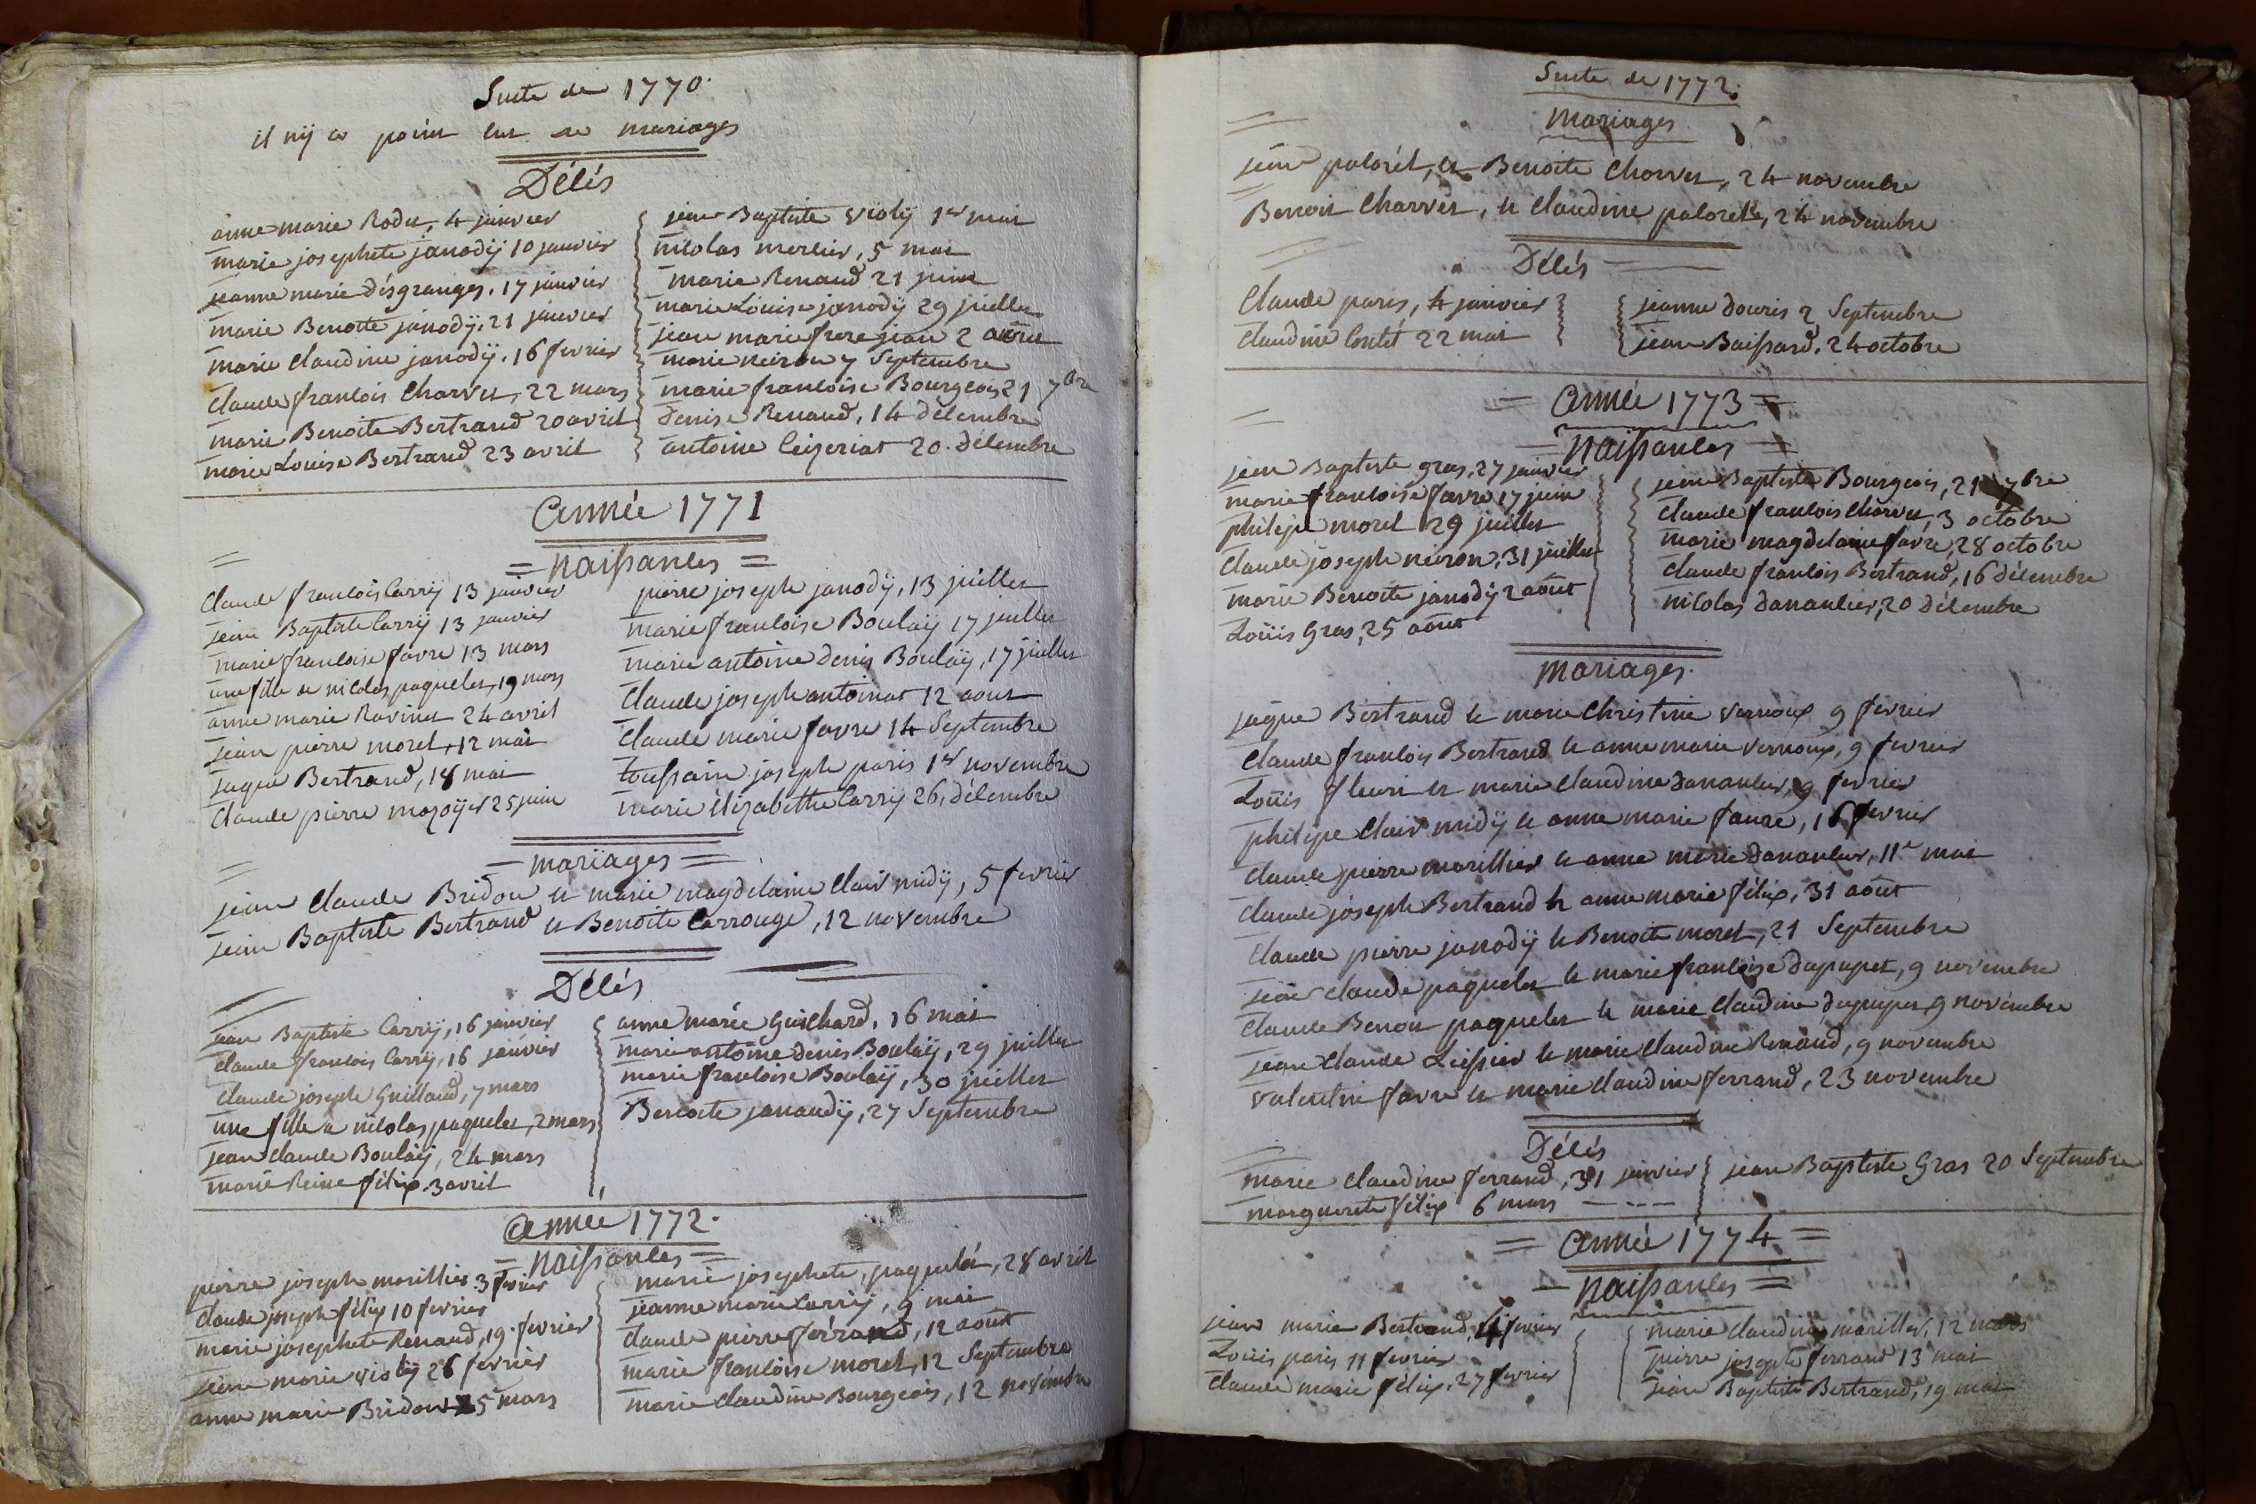 Suite de 1770.
il nÿ a point eut de mariages
Décés
anne marie Rodet, 4 janvier
marie josephete janodÿ 10 janvier
jeanne marie désgranges. 17 janvier
marie Benoite janodÿ, 21 janvier
marie claudine janodÿ. 16 fevrier
claude francois Charvet, 22 mars
marie Benoite Bertrand 20 avril
marie Louise Bertrand 23 avril
jean Baptiste violÿ 1er mai
nicolas merlier, 5 mai
marie Renaud 21 juin
marie Louise janodÿ 29 juillet
jean marie frere jean 2 août
marie neiron 7 Septembre
marie francoise Bourgeois 21 7bre
Denise Renaud, 14 décembre
antoine Ceizeriat 20. décembre
année 1771
= naissances =
Claude francois Carrÿ 13 janvier
jean Baptiste Carrÿ 13 janvier
marie francoise favre 13 mars
une fille de nicolas paquelet, 19 mars
anne marie Ravinet 24 avril
jean pierre morel, 12 mai
jaque Bertrand, 18 mai
Claude pierre mazoÿer 25 juin
pierre joseph janodÿ, 13 juillet
marie francoise Boulaÿ 17 juillet
marie antoine denis Boulaÿ, 17 juillet
Claude joseph antoinat 12 aout
Claude marie favre 14 Septembre
toussain joseph paris 1er novembre
marie élizabethe Carrÿ 26, décembre
= mariages =
jean claude Bridon et marie magdelaine Clair midÿ, 5 fevrier
jean Baptiste Bertrand et Benoite Carrouge, 12 novembre
Décés
jean Baptiste Carrÿ, 16 janvier
claude francois Carrÿ, 16 janvier
claude joseph Guillaud, 7 mars
une fille a nicolas paquelet, 2 mars
jean claude Boulaÿ, 24 mars
marie Reine félix. 3 avril
anne marie Guichard, 16 mai
marie antoine denis Boulaÿ, 29 juillet
marie francoise Boulaÿ, 30 juillet
Benoite janaudÿ, 27 Septembre
année 1772.
= naissances =
pierre joseph marillier 3 fevrier
Claude joseph félix 10 fevrier
marie josephete Renaud, 19. fevrier
jeane marie violÿ 26 fevrier
anne marie Bridon 25 mars
marie josephete, paquelet, 28 avril
jeanne marie Carrÿ, 9 mai
claude pierre ferrand, 12 août
marie francoise morel, 12 Septembre
marie claudine Bourgeois, 12 novembre
Suite de 1772.
mariages
jean palorét, et Benoite Charvet, 24 novembre
Benoit Charvet, et Claudine palorete, 24 novembre
Décés
Claude paris, 4 janvier
Claudine Contet 22 mai
jeanne douris 2 Septembre
jean Baissard. 24 octobre
= année 1773 =
= naissances =
jean Baptiste gras, 27 janvier
marie francoise favre 17 juin
philipe morel 29 juillet
Claude joseph neiron, 31 juillet
marie Benoite janodÿ 2 août
Loüis Gras, 25 août
jean Baptiste Bourgeois, 21 7bre
Claude francois Charvet, 3 octobre
marie magdelaine favre, 28 octobre
Claude francois Bertrand, 16 décembre
nicolas dananlier, 20 décembre
mariages.
jaque Bertrand et marie Christine vernoux 9 fevrier
Claude francois Bertrand et anne marie vernoux, 9 fevrier
Loüis fleuri et marie claudine dananlier, 9 fevrier
philipe Clair midÿ et anne marie faure, 16 fevrier
Claude pierre marillier et anne marie dananlier, 11e mai
Claude joseph Bertrand et anne marie félix, 31 août
Claude pierre janodÿ et Benoite morel, 21 Septembre
jean claude paquelet et marie francoise dupupet, 9 novembre
Claude Benoit paquelet et marie claudine dupupet 9 novembre
jean Claude et marie Claudine Renaud, 9 novembre
valentin favre et marie claudine ferrand, 23 novembre
Décés
marie Claudine ferrand, 31 janvier
marguerite félix 6 mars
jean Baptiste Gras 20 Septembre
= année 1774 =
= naissances =
jean marie Bertrand, 4 fevrier
Loüis paris 11 fevrier
Claude marie félix, 27 fevrier
marie claudine marillier, 12 mars
pierre joseph ferrand 13 mai
jean Baptiste Bertrand, 19 mai